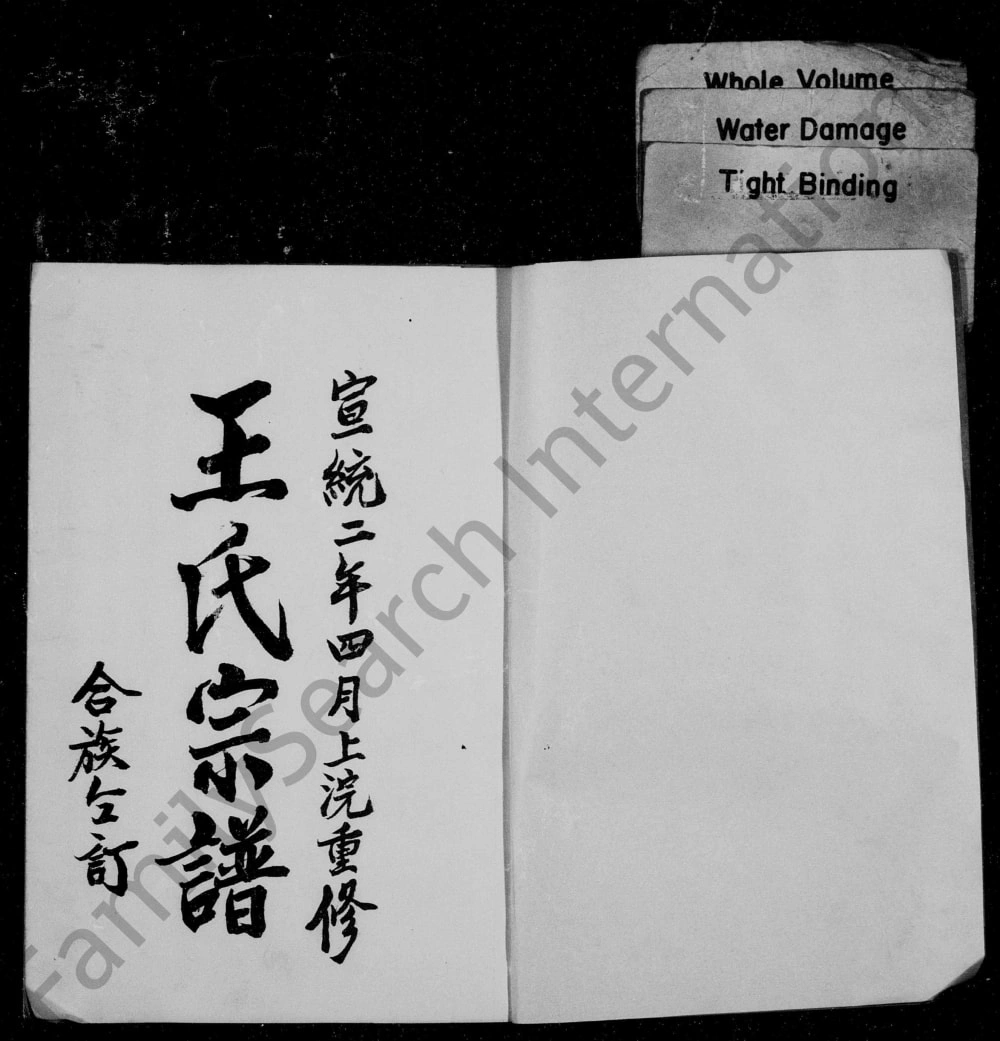 Whole Volume
Water Damage
Tight Binding
宣統二年四月上浣重修
王氏宗譜
合族公訂
FamilySearch International